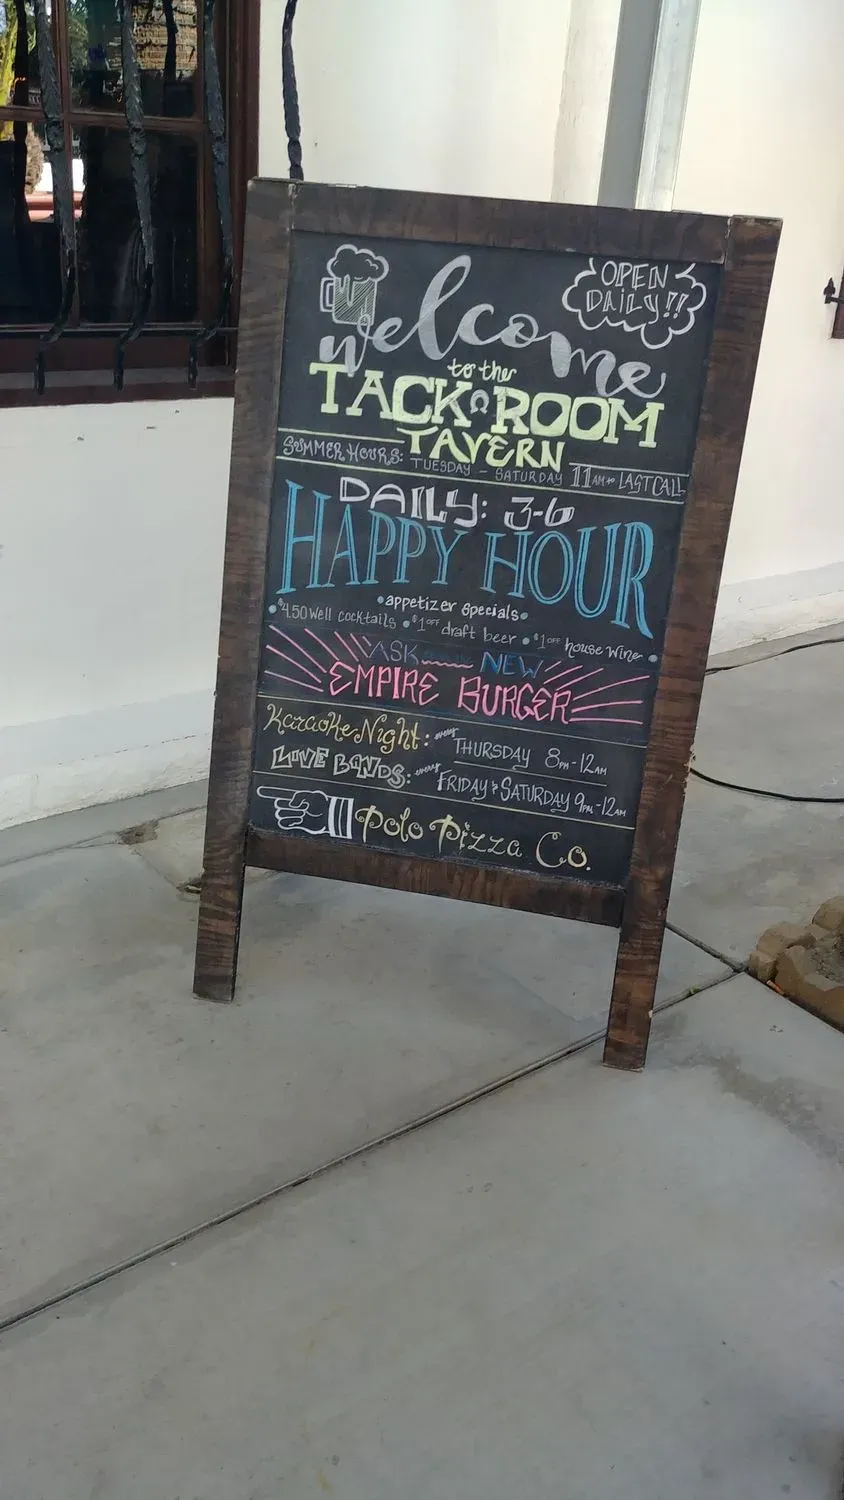 OPEN
DAILY!!
welcome
to the
TACK ROOM
TAVERN
SUMMER HOURS: TUESDAY - SATURDAY 11AM to LAST CALL
DAILY: 3-6
HAPPY HOUR
•appetizer specials•
•$4.50 well cocktails •$1OFF draft beer •$1OFF house wine•
ASK NEW
EMPIRE BURGER
Karaoke Night: every THURSDAY 8PM-12AM
LIVE BANDS: every FRIDAY & SATURDAY 9PM-12AM
Polo Pizza Co.